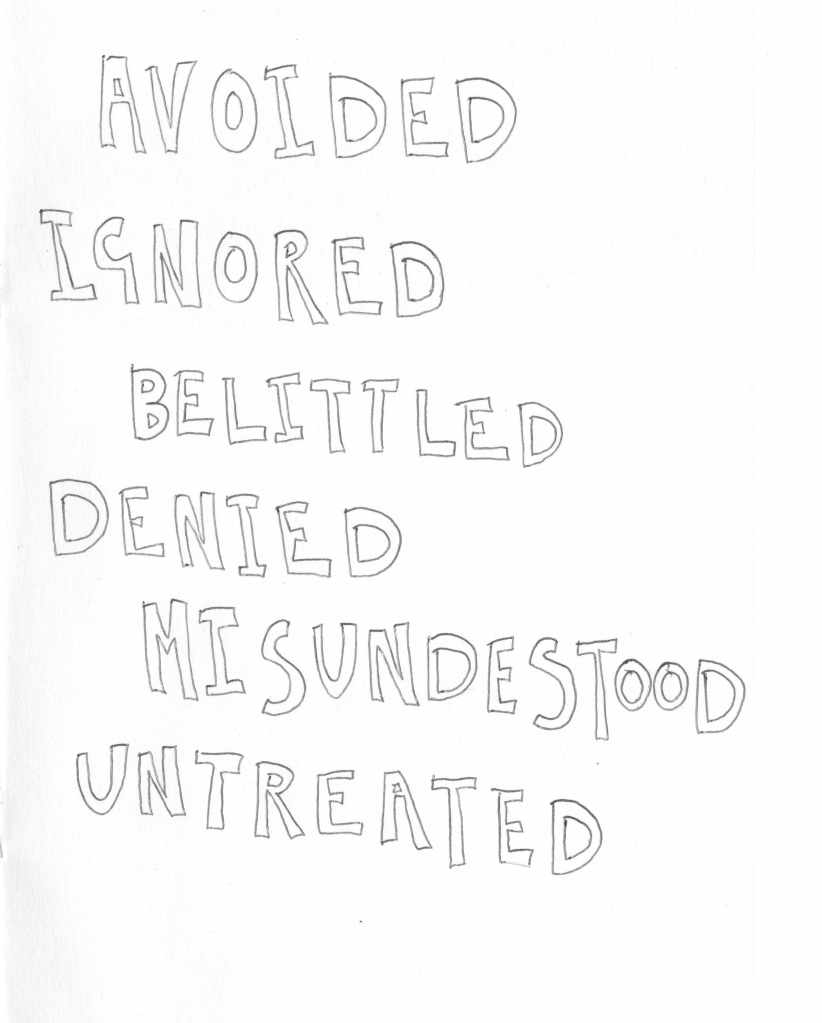 AVOIDED
IGNORED
BELITTLED
DENIED
MISUNDESTOOD
UNTREATED